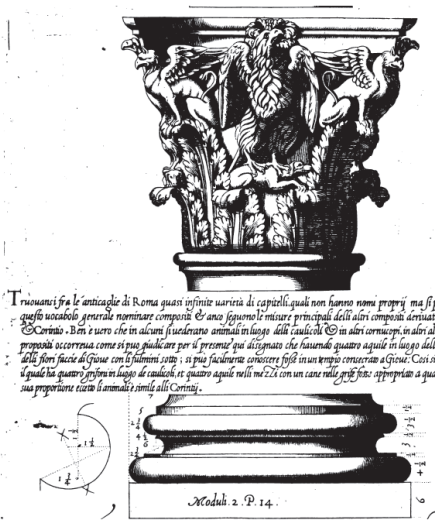 Truovansi fra le anticaglie di Roma quasi infinite varietà di capitelli quali non hanno nomi proprij ma si p
questo vocabolo generale nominare compositi & anco seguono le misure principali delli altri compositi derivat
& Corintio. Ben è vero che in alcuni si vederano animali in luogo delli caulicoli & in altri cornucopi, in altri al
propositi occorreva come si puo giudicare per il presente qui disegnato che havendo quattro aquile in luogo dell
delli fiori faccie di Giove con li fulmini sotto; si può facilmente conoscere fosse in un tempio consecrato a Giove. Cosi si
il quale ha quattro grifoni in luogo de caulicoli, et quattro aquile nelli mezzi con un cane nelle griffe appropriato a qu
sua proportione eccetto li animali è simile alli Corintij.
Moduli. 2. P. 14.